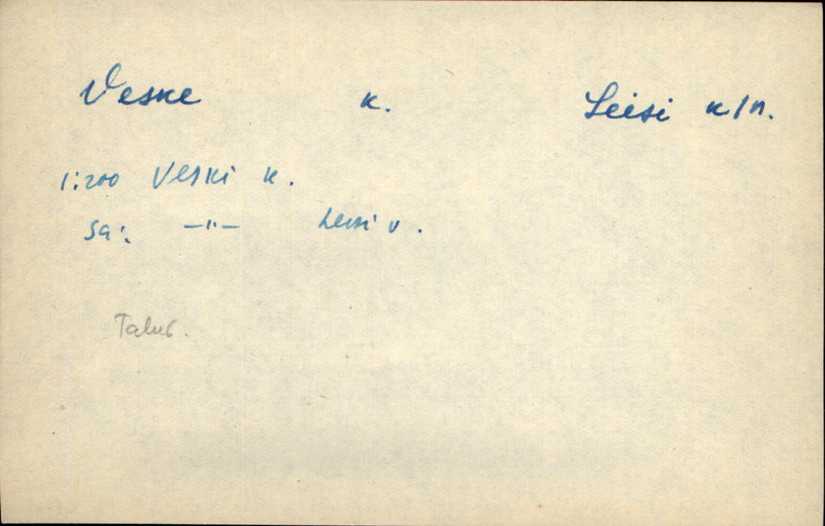 Veske k. Leisi k/n.
1:200 Veski k.
Sa: —"— Leisi v.